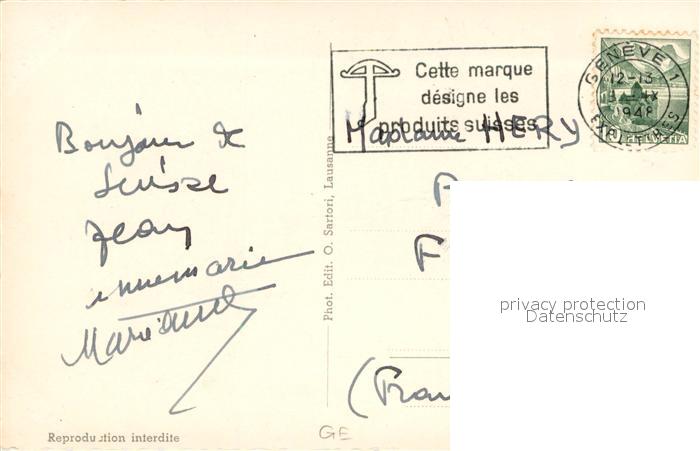 Bonjour de
Suisse
Jean
Annemarie
Marianne
Reproduction interdite
Phot. Edit. O. Sartori, Lausanne
GE
Cette marque
désigne les
produits suisses
GENÈVE 1
12-13
1948
HELVETIA
Madame HERY
F
(Fran
privacy protection
Datenschutz